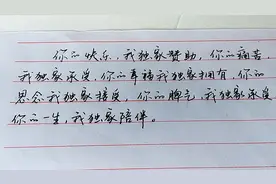 你的快乐，我独家赞助，你的痛苦，
我独家承受，你的幸福我独家拥有，你的
思念我独家接受，你的脾气，我独家承受
你的一生，我独家陪伴。